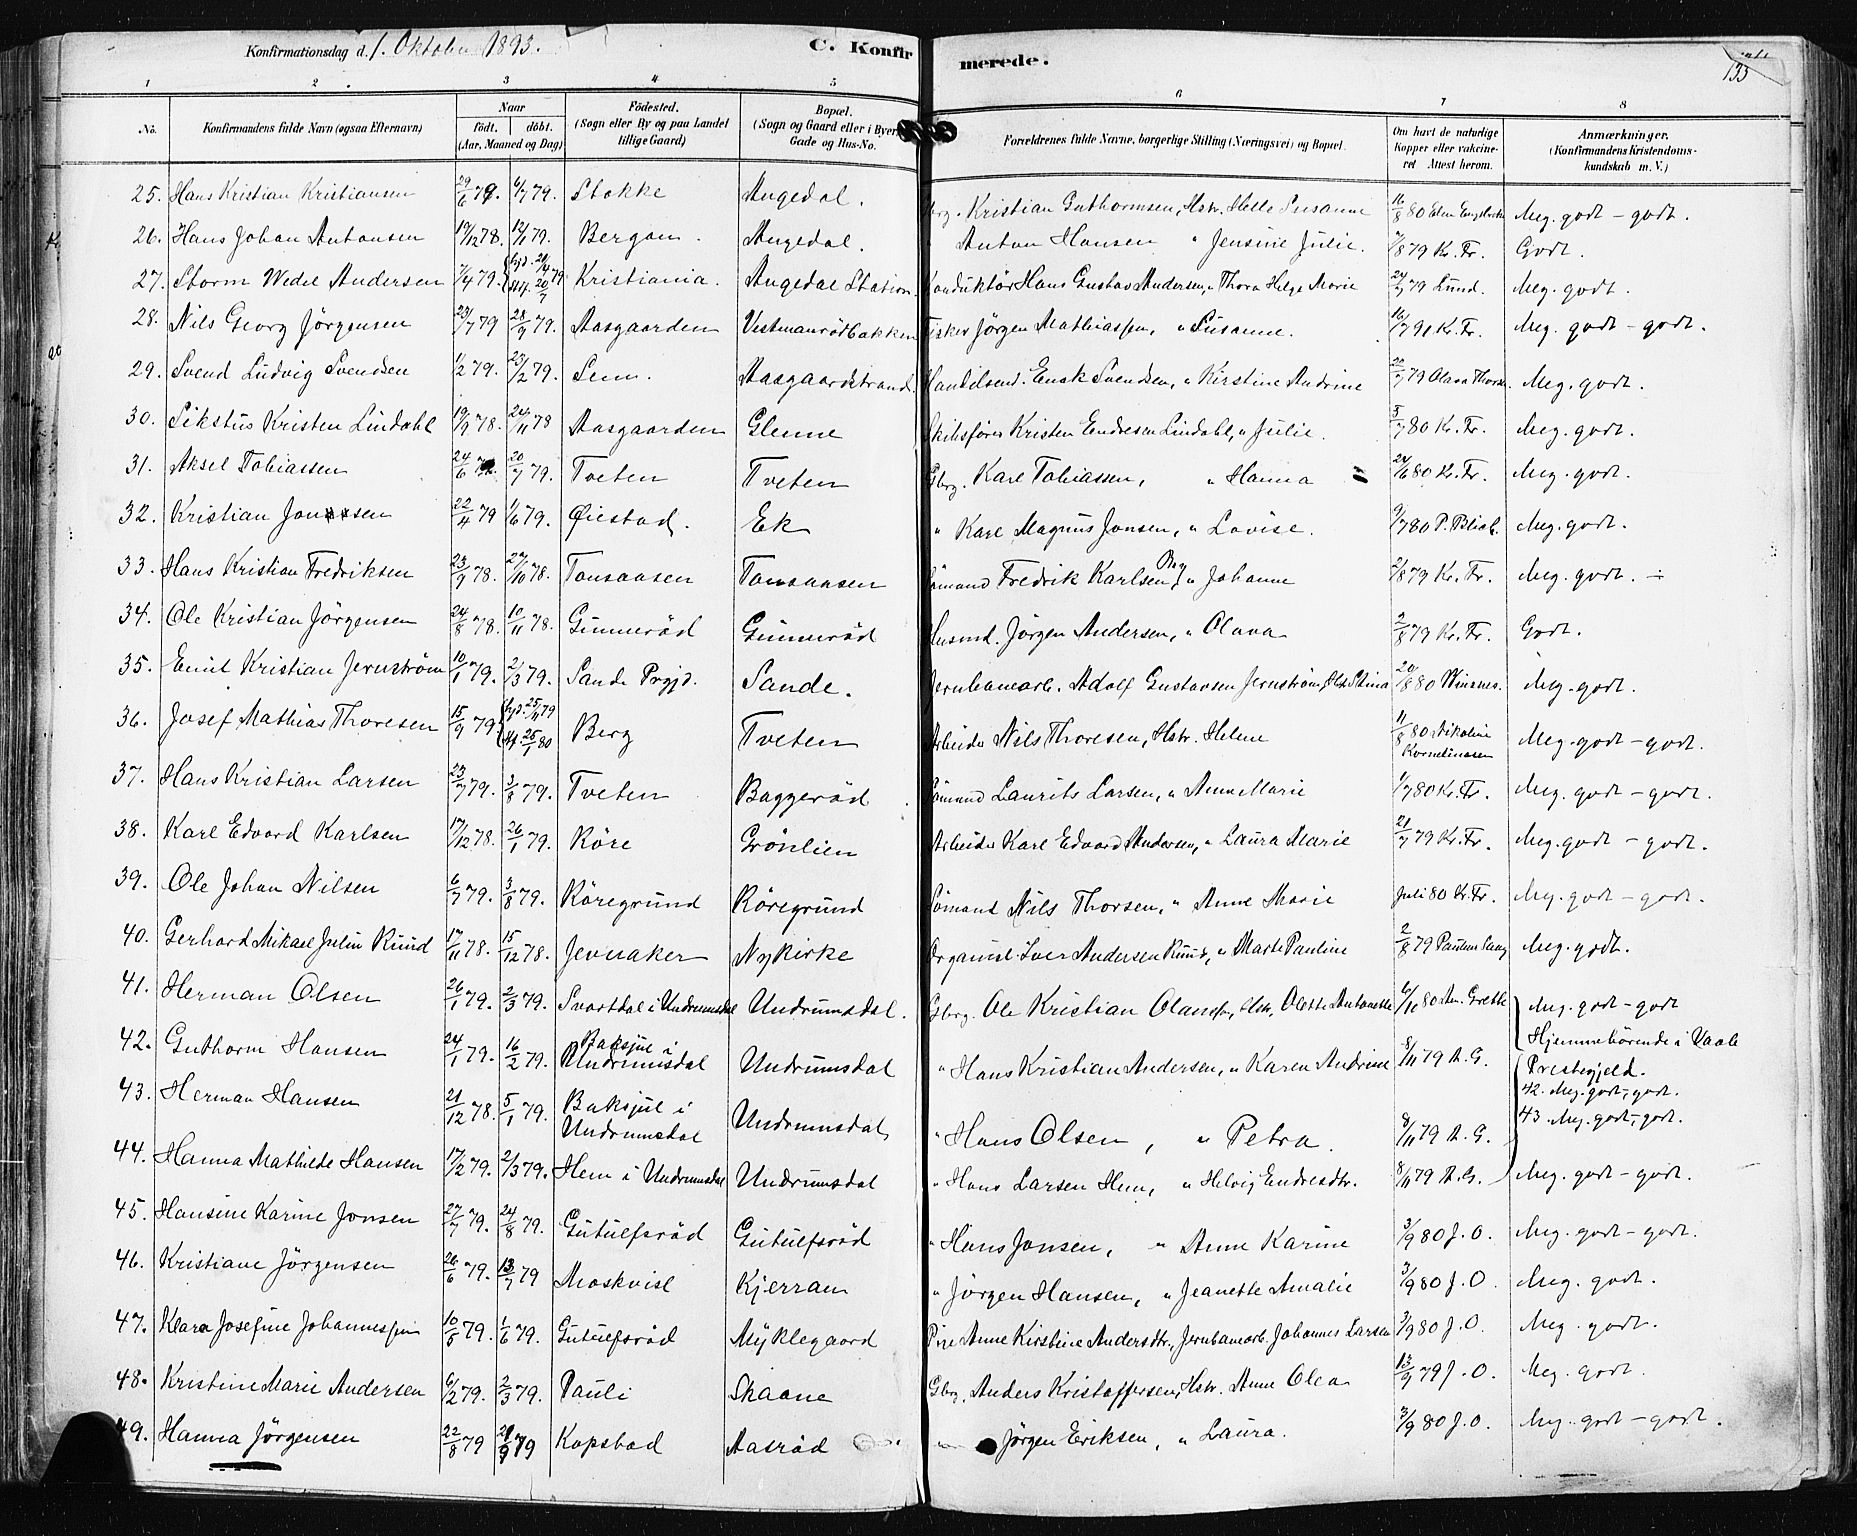 Konfirmationsdag d. 1. Oktober 1893. C. Konfirmerede. 133
1 2 3 4 5 6 7 8
No. Konfirmandens fulde Navn (ogsaa Efternavn) Naar født. døbt. (Aar, Maaned og Dag) Fødested. (Sogn eller By og paa Landet tillige Gaard) Bopæl. (Sogn og Gaard eller i Byer Gade og Hus-No. Forældrenes fulde Navne, borgerlige Stilling (Næringsvei) og Bopæl. Om havt de naturlige Kopper eller vakcineret Attest herom. Anmærkninger. (Konfirmandens Kristendomskundskab m. V.)
25. Hans Kristian Kristiansen 29/6 79. 6/7 79. Stokke Augedal. Gbrg. Kristian Guthormsen, Hstr. Helle Susanne 16/8 80 Meg. godt - godt.
26. Hans Johan Antonsen 19/12 78. 12/1 79. Bergan. Augedal. " Anton Hansen " Jensine Julie. 7/8 79 Kr. Fr. Godt.
27. Storm Wedel Andersen 7/4 79. Kristiania. Augedal Station. Konduktör Hans Gustav Andersen, " Thora Helge Marie 24/7 79 Lund. Meg. godt.
28. Nils Georg Jörgensen 23/7 79 28/9 79. Aasgaarden Vestmanrödbakken Fisker Jörgen Mathiassen, " Susanne. 16/7 91 Kr. Fr. Meg. godt - godt.
29. Svend Ludvig Svendsen 1/2 79. 23/2 79. Sem. Aasgaardstrand. Handelsend. Enok Svendsen, " Kirstine Andrine 22/7 79 Olava Thorsd. Meg. godt.
30. Sikstus Kristen Lindahl 19/9 78. 24/11 78 Aasgaarden Glenne Skibsförer Kristen Endresen Lindahl, " Julie. 5/7 80 Kr. Fr. Meg. godt.
31. Aksel Tobiassen 24/6 20/7 79. Tveten Tveten Gbrg. Karl Tobiassen, " Hanna 24/6 80 Kr. Fr. Meg. godt.
32. Kristian Jonsen 22/4 79 1/6 79. Øiestad. Ek " Karl Magnus Jonsen, " Lovise. 9/7 80 P. Bliak. Meg. godt.
33. Hans Kristian Fredriksen 23/9 78. 27/10 78. Tonsaasen Tonsaasen Sömand Fredrik Karlsen Berg, " Johanne 2/8 79 Kr. Fr. Meg. godt. ÷
34. Ole Kristian Jörgensen 24/8 78. 10/11 78. Gunneröd Gunneröd Husmd. Jörgen Andersen, " Olava 2/8 79 Kr. Fr. Godt.
35. Emil Kristian Jernström 10/1 79. 2/3 79. Sande Prgjd. Sande. Jernbanearb. Adolf Gustavsen Jernström, Hst. Stina 20/8 80 Winsnes. Meg. godt.
36. Josef Mathias Thoresen 15/9 79 hjd. 25/11 79 25/1 80 Berg Tveten Arbeider Nils Thoresen, Hstr. Helene 11/8 80 Nikoline Kornelinasen Meg. godt - godt.
37. Hans Kristian Larsen 23/7 79. 3/8 79. Tveten Baggeröd Sömand Laurits Larsen, " Anne Marie 1/7 80 Kr. Fr. Meg. godt - godt.
38. Karl Edvard Karlsen 17/12 78. 26/1 79. Röre Grönlien Arbeider Karl Edvard Andersen, " Laura Marie 21/7 79 Kr. Fr. Meg. godt - godt.
39. Ole Johan Nilsen 6/7 79. 3/8 79. Röregrund Röregrund Sömand Nils Thorsen, " Anne Marie Juli 80 Kr. Fr. Meg. godt - godt.
40. Gerhard Mikael Julin Ruud 17/11 78. 15/12 78. Jevnaker Nykirke Organist Iver Andersen Ruud, " Marte Pauline 2/8 79 Meg. godt.
41. Herman Olsen 26/1 79. 2/3 79. Svartdal i Undrumsdal Undrumsdal. Gbrg. Ole Kristian Olansen, Hstr. Olette Antonette 6/10 80 An. Grette Meg. godt - godt
Hjemmehörende i Vaale Prestegjeld.
42. Guthorm Hansen 24/1 79. 16/2 79. Baksjul i Undrumsdal Undrumsdal " Hans Kristian Andersen, " Karen Andrine 8/11 79 A. G. 42. Meg. godt, godt.
43. Herman Hansen 21/12 78. 5/1 79. Baksjul i Undrumsdal Undrumsdal " Hans Olsen, " Petra. 8/11 79 A. G. 43 Meg. godt, godt.
44. Hanna Mathilde Hansen 17/2 79. 2/3 79. Hem i Undrumsdal Undrumsdal " Hans Larsen Hem, " Helvig Endresdtr. 8/11 79 A. G. Meg. godt - godt.
45. Hansine Karine Jonsen 27/7 79. 24/8 79. Gutulfsröd Gutulfsröd " Hans Jonsen, " Anne Karine 3/9 80 J. O. Meg. godt - godt.
46. Kristiane Jörgensen 26/6 79. 13/7 79 Moskvist Kjerran " Jörgen Hansen, " Jeanette Amalie 3/9 80 J. O. Meg. godt.
47. Klara Josefine Johannessen 10/5 79. 1/6 79. Gutulfsröd Myklegaard Pige Anne Kirstine Andersdtr., Jernbanearb. Johannes Larsen 3/9 80 J. O. Meg. godt.
48. Kristine Marie Andersen 6/2 79. 2/3 79. Pauli Skaane Gbrg. Anders Kristoffersen, Hstr. Anne Olea 13/9 79 J. O. Meg. godt.
49. Hanna Jörgensen 22/8 79 21/9 79 Kopstad Aasröd " Jörgen Eriksen, " Laura. 3/9 80 J. O. Meg. godt - godt.